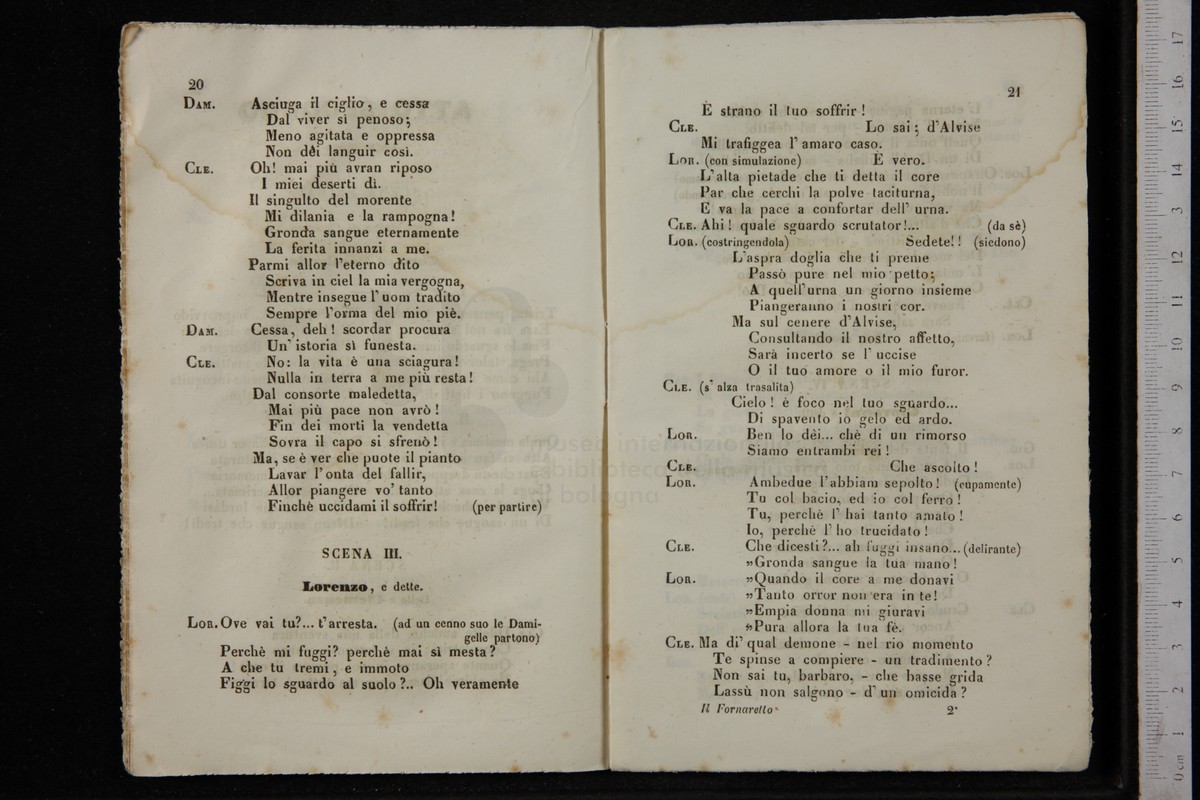 20
DAM. Asciuga il ciglio, e cessa
Dal viver sì penoso;
Meno agitata e oppressa
Non dêi languir così.
CLE. Oh! mai più avran riposo
I miei deserti dì.
Il singulto del morente
Mi dilania e la rampogna!
Gronda sangue eternamente
La ferita innanzi a me.
Parmi allor l'eterno dito
Scriva in ciel la mia vergogna,
Mentre insegue l'uom tradito
Sempre l'orma del mio piè.
DAM. Cessa, deh! scordar procura
Un'istoria sì funesta.
CLE. No: la vita è una sciagura!
Nulla in terra a me più resta!
Dal consorte maledetta,
Mai più pace non avrò!
Fin dei morti la vendetta
Sovra il capo si sfrenò!
Ma, se è ver che puote il pianto
Lavar l'onta del fallir,
Allor piangere vo' tanto
Finchè uccidami il soffrir! (per partire)
SCENA III.
Lorenzo, e dette.
LOR. Ove vai tu?... t'arresta. (ad un cenno suo le Dami-
gelle partono)
Perchè mi fuggi? perchè mai sì mesta?
A che tu tremi, e immoto
Figgi lo sguardo al suolo?.. Oh veramente
21
È strano il tuo soffrir!
CLE. Lo sai; d'Alvise
Mi trafiggea l'amaro caso.
LOR. (con simulazione) È vero.
L'alta pietade che ti detta il core
Par che cerchi la polve taciturna,
E va la pace a confortar dell'urna.
CLE. Ahi! quale sguardo scrutator!... (da sè)
LOR. (costringendola) Sedete!! (siedono)
L'aspra doglia che ti preme
Passò pure nel mio petto;
A quell'urna un giorno insieme
Piangeranno i nostri cor.
Ma sul cenere d'Alvise,
Consultando il nostro affetto,
Sarà incerto se l'uccise
O il tuo amore o il mio furor.
CLE. (s'alza trasalita)
Cielo! è foco nel tuo sguardo...
Di spavento io gelo ed ardo.
LOR. Ben lo dêi... chè di un rimorso
Siamo entrambi rei!
CLE. Che ascolto!
LOR. Ambedue l'abbiam sepolto! (cupamente)
Tu col bacio, ed io col ferro!
Tu, perchè l'hai tanto amato!
Io, perchè l'ho trucidato!
CLE. Che dicesti?... ah fuggi insano... (delirante)
»Gronda sangue la tua mano!
LOR. »Quando il core a me donavi
»Tanto orror non era in te!
»Empia donna mi giuravi
»Pura allora la tua fè.
CLE. Ma di' qual demone - nel rio momento
Te spinse a compiere - un tradimento?
Non sai tu, barbaro, - che basse grida
Lassù non salgono - d'un omicida?
Il Fornaretto 2*
museo internazionale
e biblioteca della musica
di bologna